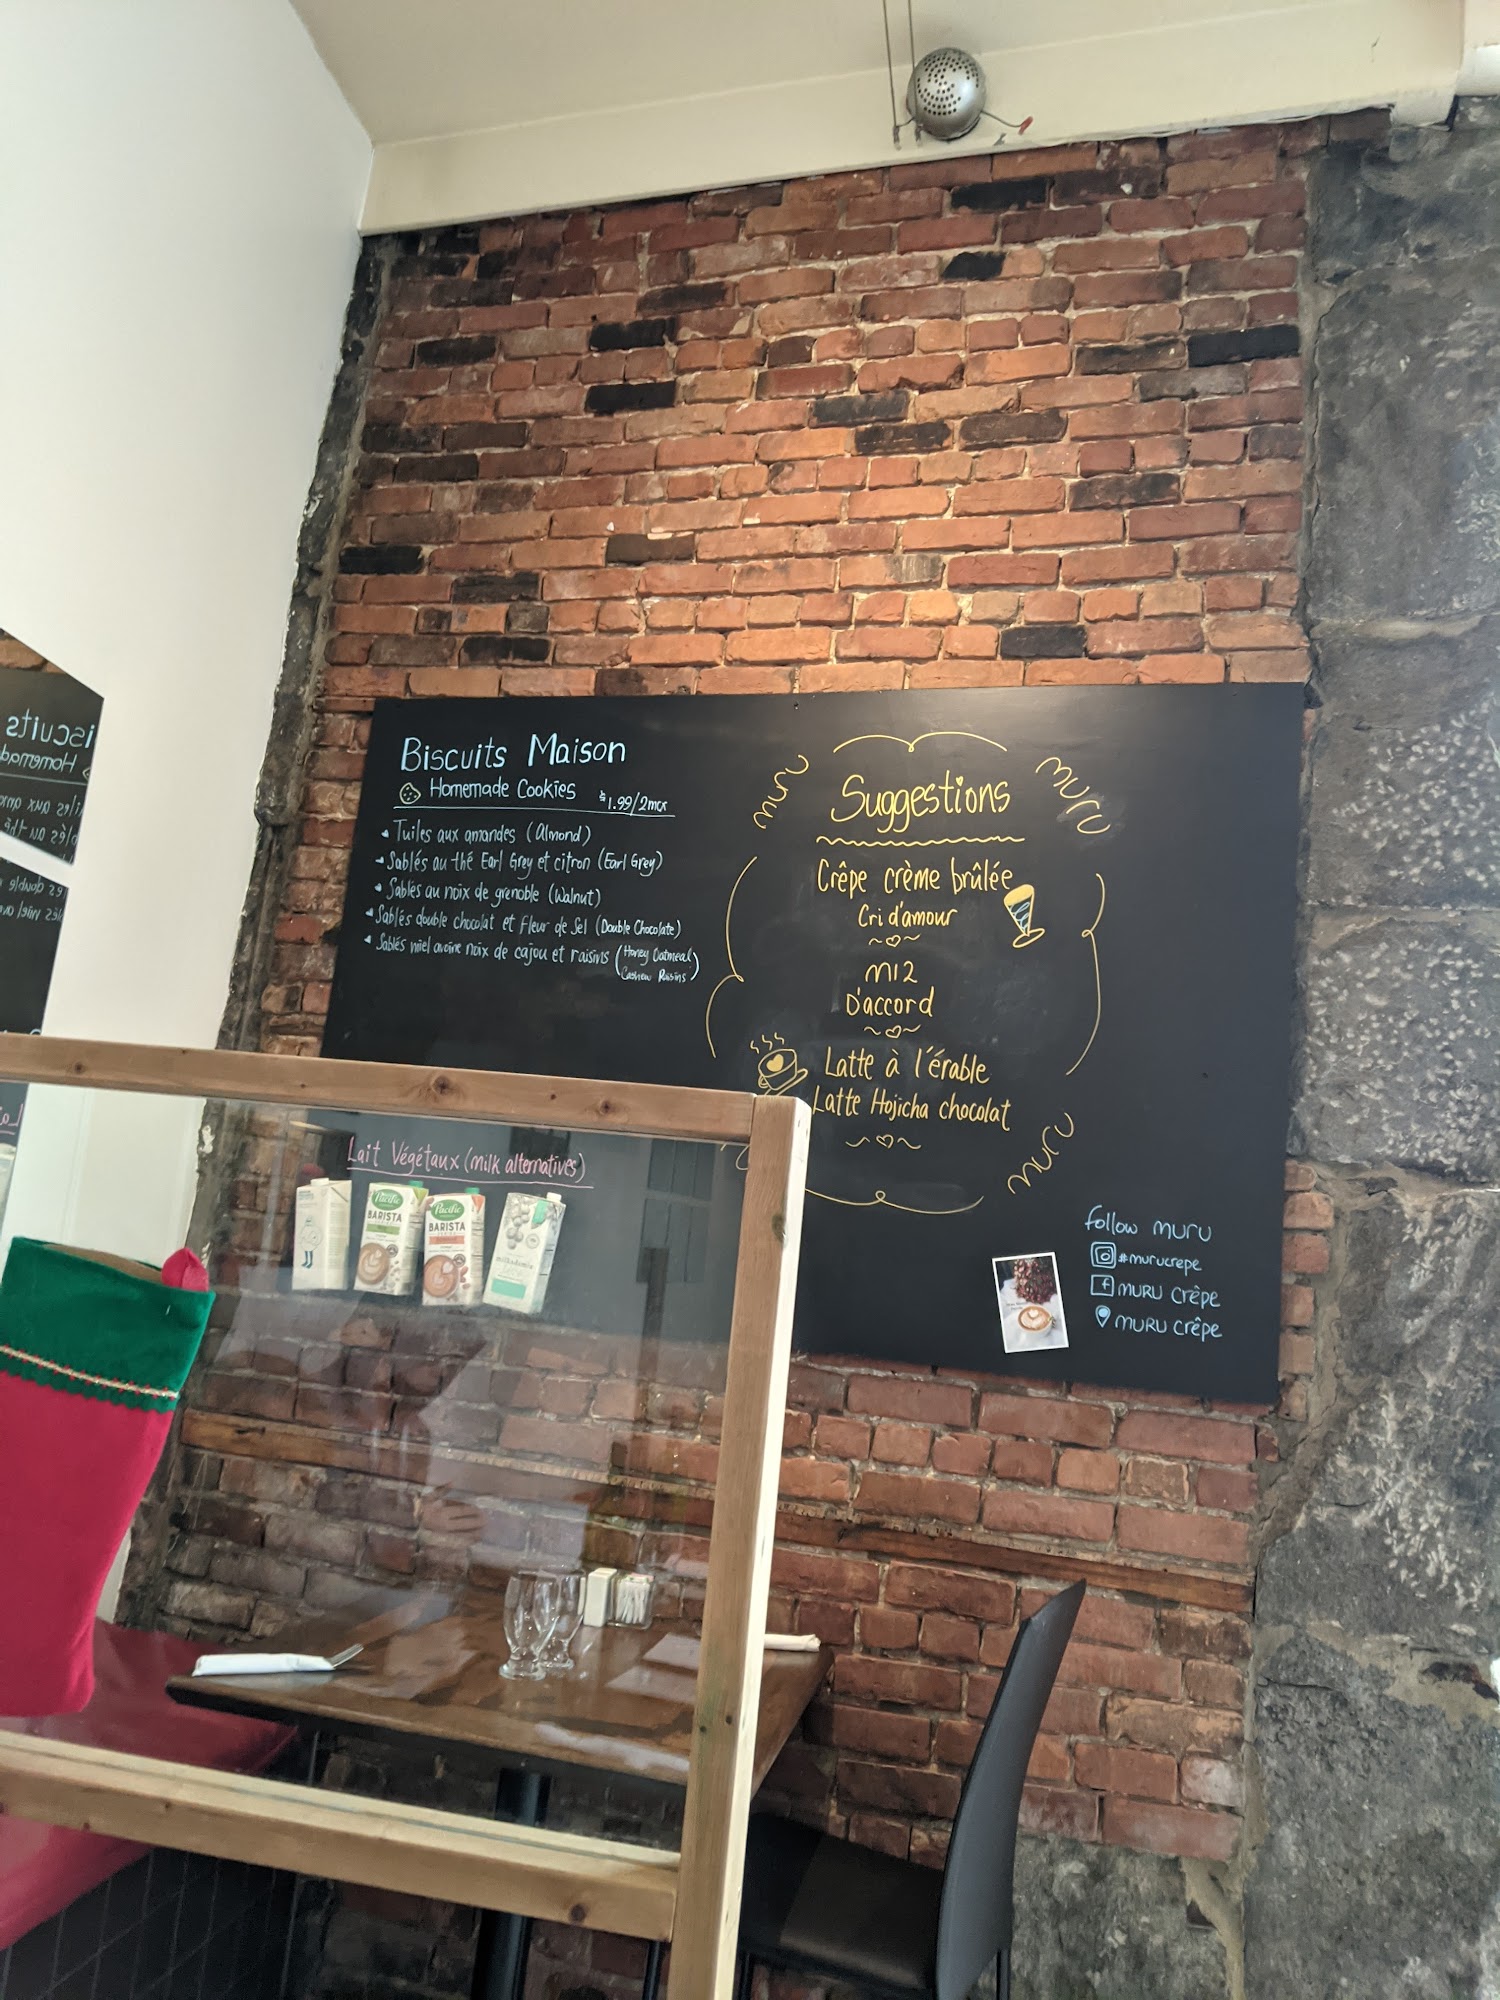 Biscuits Maison
Homemade Cookies $1.99/2mcx
Tuiles aux amandes (Almond)
Sablés au thé Earl Grey et citron (Earl Grey)
Sablés au noix de grenoble (Walnut)
Sablés double chocolat et Fleur de Sel (Double Chocolate)
Sablés miel avoine noix de cajou et raisins (Honey Oatmeal
Cashew Raisins)
muru
MURU
Suggestions
Crêpe crème brûlée
Cri d'amour
M12
D'accord
Latte à l'érable
Latte Hojicha chocolat
muru
Lait Végétaux (milk alternatives)
Pacific
BARISTA
Pacific
BARISTA
milkadamia
follow MURU
#murucrepe
MURU Crêpe
MURU Crêpe